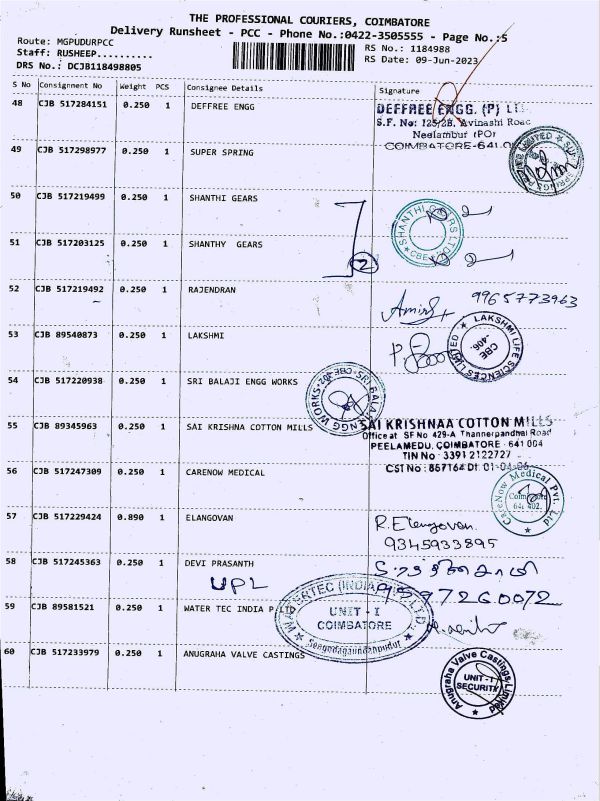 THE PROFESSIONAL COURIERS, COIMBATORE
Delivery Runsheet - PCC - Phone No.:0422-3505555 - Page No.:5
Route: MGPUDURPCC
Staff: RUSHEEP..........
DRS No.: DCJB118498805
RS No.: 1184988
RS Date: 09-Jun-2023
S No Consignment No Weight PCS Consignee Details Signature
48 CJB 517284151 0.250 1 DEFFREE ENGG
DEFFREE ENGG. (P) LT
S.F. No: 125/2B, Avinashi Road
Neelambur (PO)
COIMBATORE-641
49 CJB 517298977 0.250 1 SUPER SPRING
50 CJB 517219499 0.250 1 SHANTHI GEARS
SHANTHI GEARS LTD
CBE
51 CJB 517203125 0.250 1 SHANTHY GEARS
2
52 CJB 517219492 0.250 1 RAJENDRAN
9965773963
53 CJB 89540873 0.250 1 LAKSHMI
LAKSHMI LIFE SCIENCES LIMITED
CBE
-406.
54 CJB 517220938 0.250 1 SRI BALAJI ENGG WORKS
SRI BALAJI ENGG WORKS
55 CJB 89345963 0.250 1 SAI KRISHNA COTTON MILLS
SAI KRISHNAA COTTON MILLS
Office at SF No 429-A Thannerpandhal Road
PEELAMEDU, COIMBATORE - 641 004
TIN No : 3391 2122727
CST No : 867164 Dt 01-04-06
56 CJB 517247309 0.250 1 CARENOW MEDICAL
CareNow Medical Pvt. Ltd
Coimbatore
641 402.
57 CJB 517229424 0.890 1 ELANGOVAN
R.Elangovan.
9345933895
58 CJB 517245363 0.250 1 DEVI PRASANTH
UPL
9597260072
59 CJB 89581521 0.250 1 WATER TEC INDIA P LTD
WATERTEC (INDIA) P. LTD
UNIT - I
COIMBATORE
60 CJB 517233979 0.250 1 ANUGRAHA VALVE CASTINGS
Anugraha Valve Castings Limited
UNIT-I
SECURITY